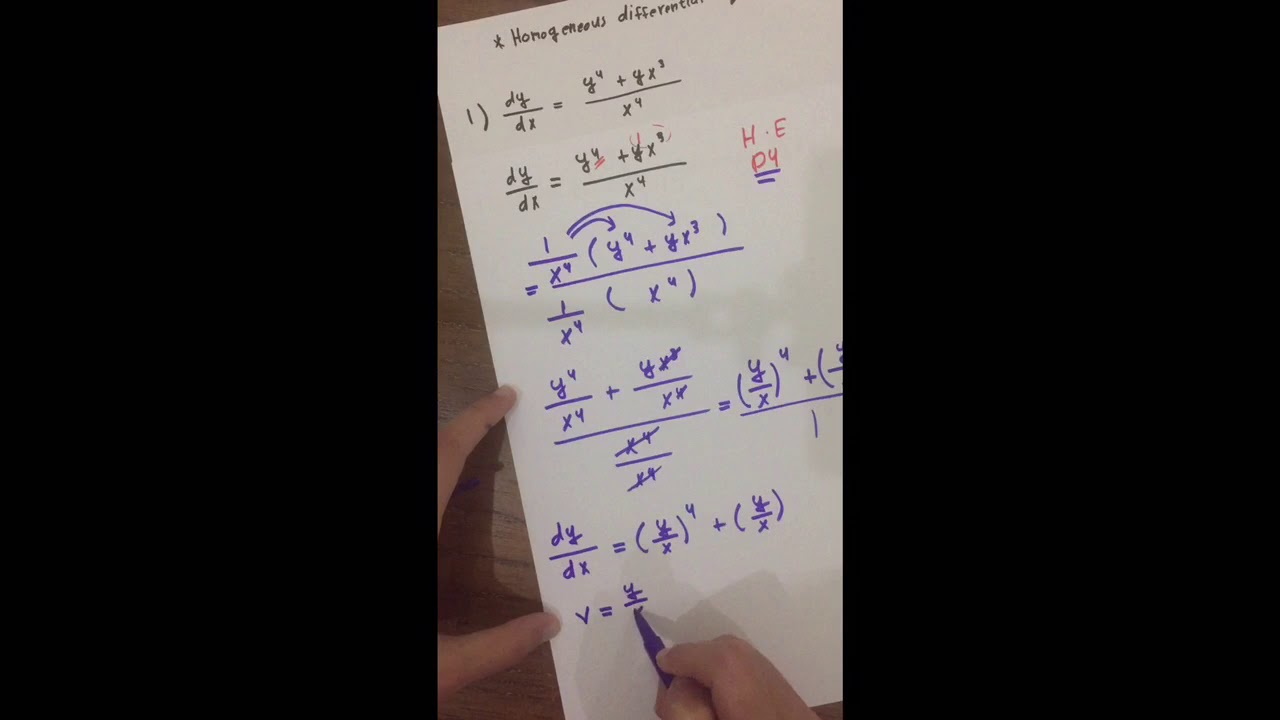 * Homogeneous
1) dy/dx = (y⁴ + yx³)/x⁴
dy/dx = (y⁴ + yx³)/x⁴
H.E
D4
= (1/x⁴ (y⁴ + yx³))/(1/x⁴ (x⁴))
(y⁴/x⁴ + yx³/x⁴)/(x⁴/x⁴) = ((y/x)⁴ + (y/)/1
dy/dx = (y/x)⁴ + (y/x)
v = y/